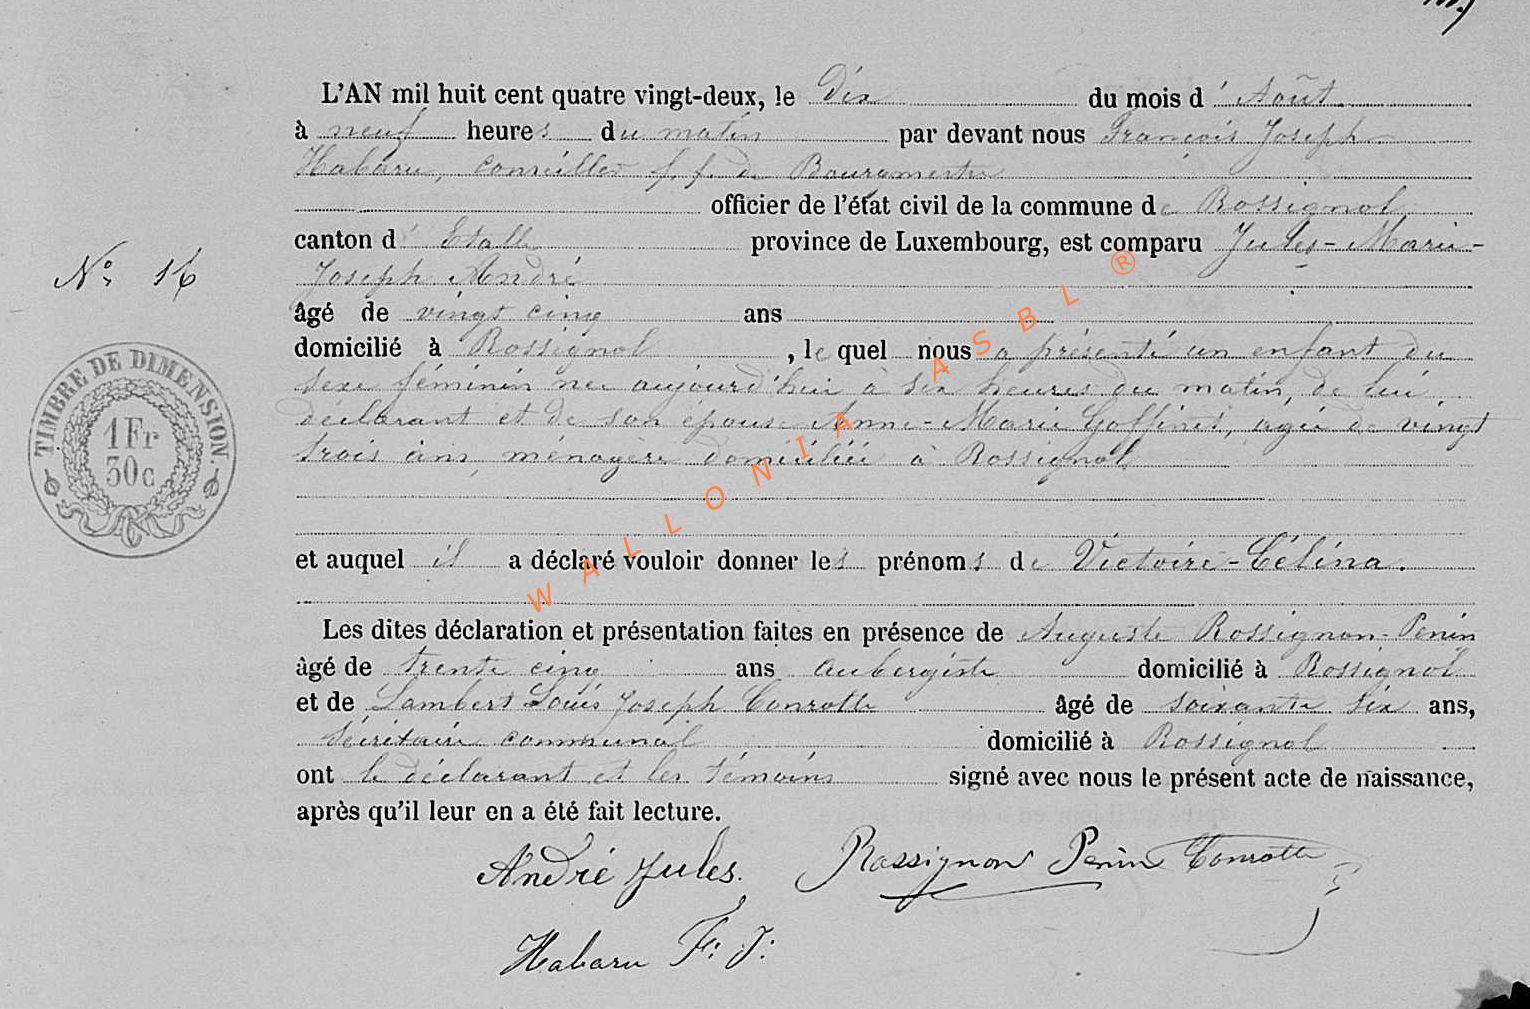 L'AN mil huit cent quatre vingt-deux, le Dix du mois d' Août
à neuf heures du matin par devant nous François Joseph
Habaru, conseiller f. f. de Bourgmestre
officier de l'état civil de la commune de Rossignol
canton d' Etalle province de Luxembourg, est comparu Jules-Marie-
Joseph André
N° 16
âgé de vingt cinq ans
domicilié à Rossignol, lequel nous a présenté un enfant du
sexe féminin née aujourd'hui à six heures du matin, de lui
déclarant et de son épouse Anne-Marie Goffinet, agée de vingt
trois ans, ménagère domiciliée à Rossignol
TIMBRE DE DIMENSION.
1 Fr
30c
et auquel il a déclaré vouloir donner les prénoms de Victoire-Célina.
Les dites déclaration et présentation faites en présence de Auguste Rossignon-Penin
âgé de trente cinq ans aubergiste domicilié à Rossignol
et de Lambert Louis Joseph Conrotte âgé de soixante six ans,
secrétaire communal domicilié à Rossignol
ont le déclarant et les témoins signé avec nous le présent acte de naissance,
après qu'il leur en a été fait lecture.
André Jules. Rossignon Penin Conrotte
Habaru F. J.
WALLONIA ASBL ®